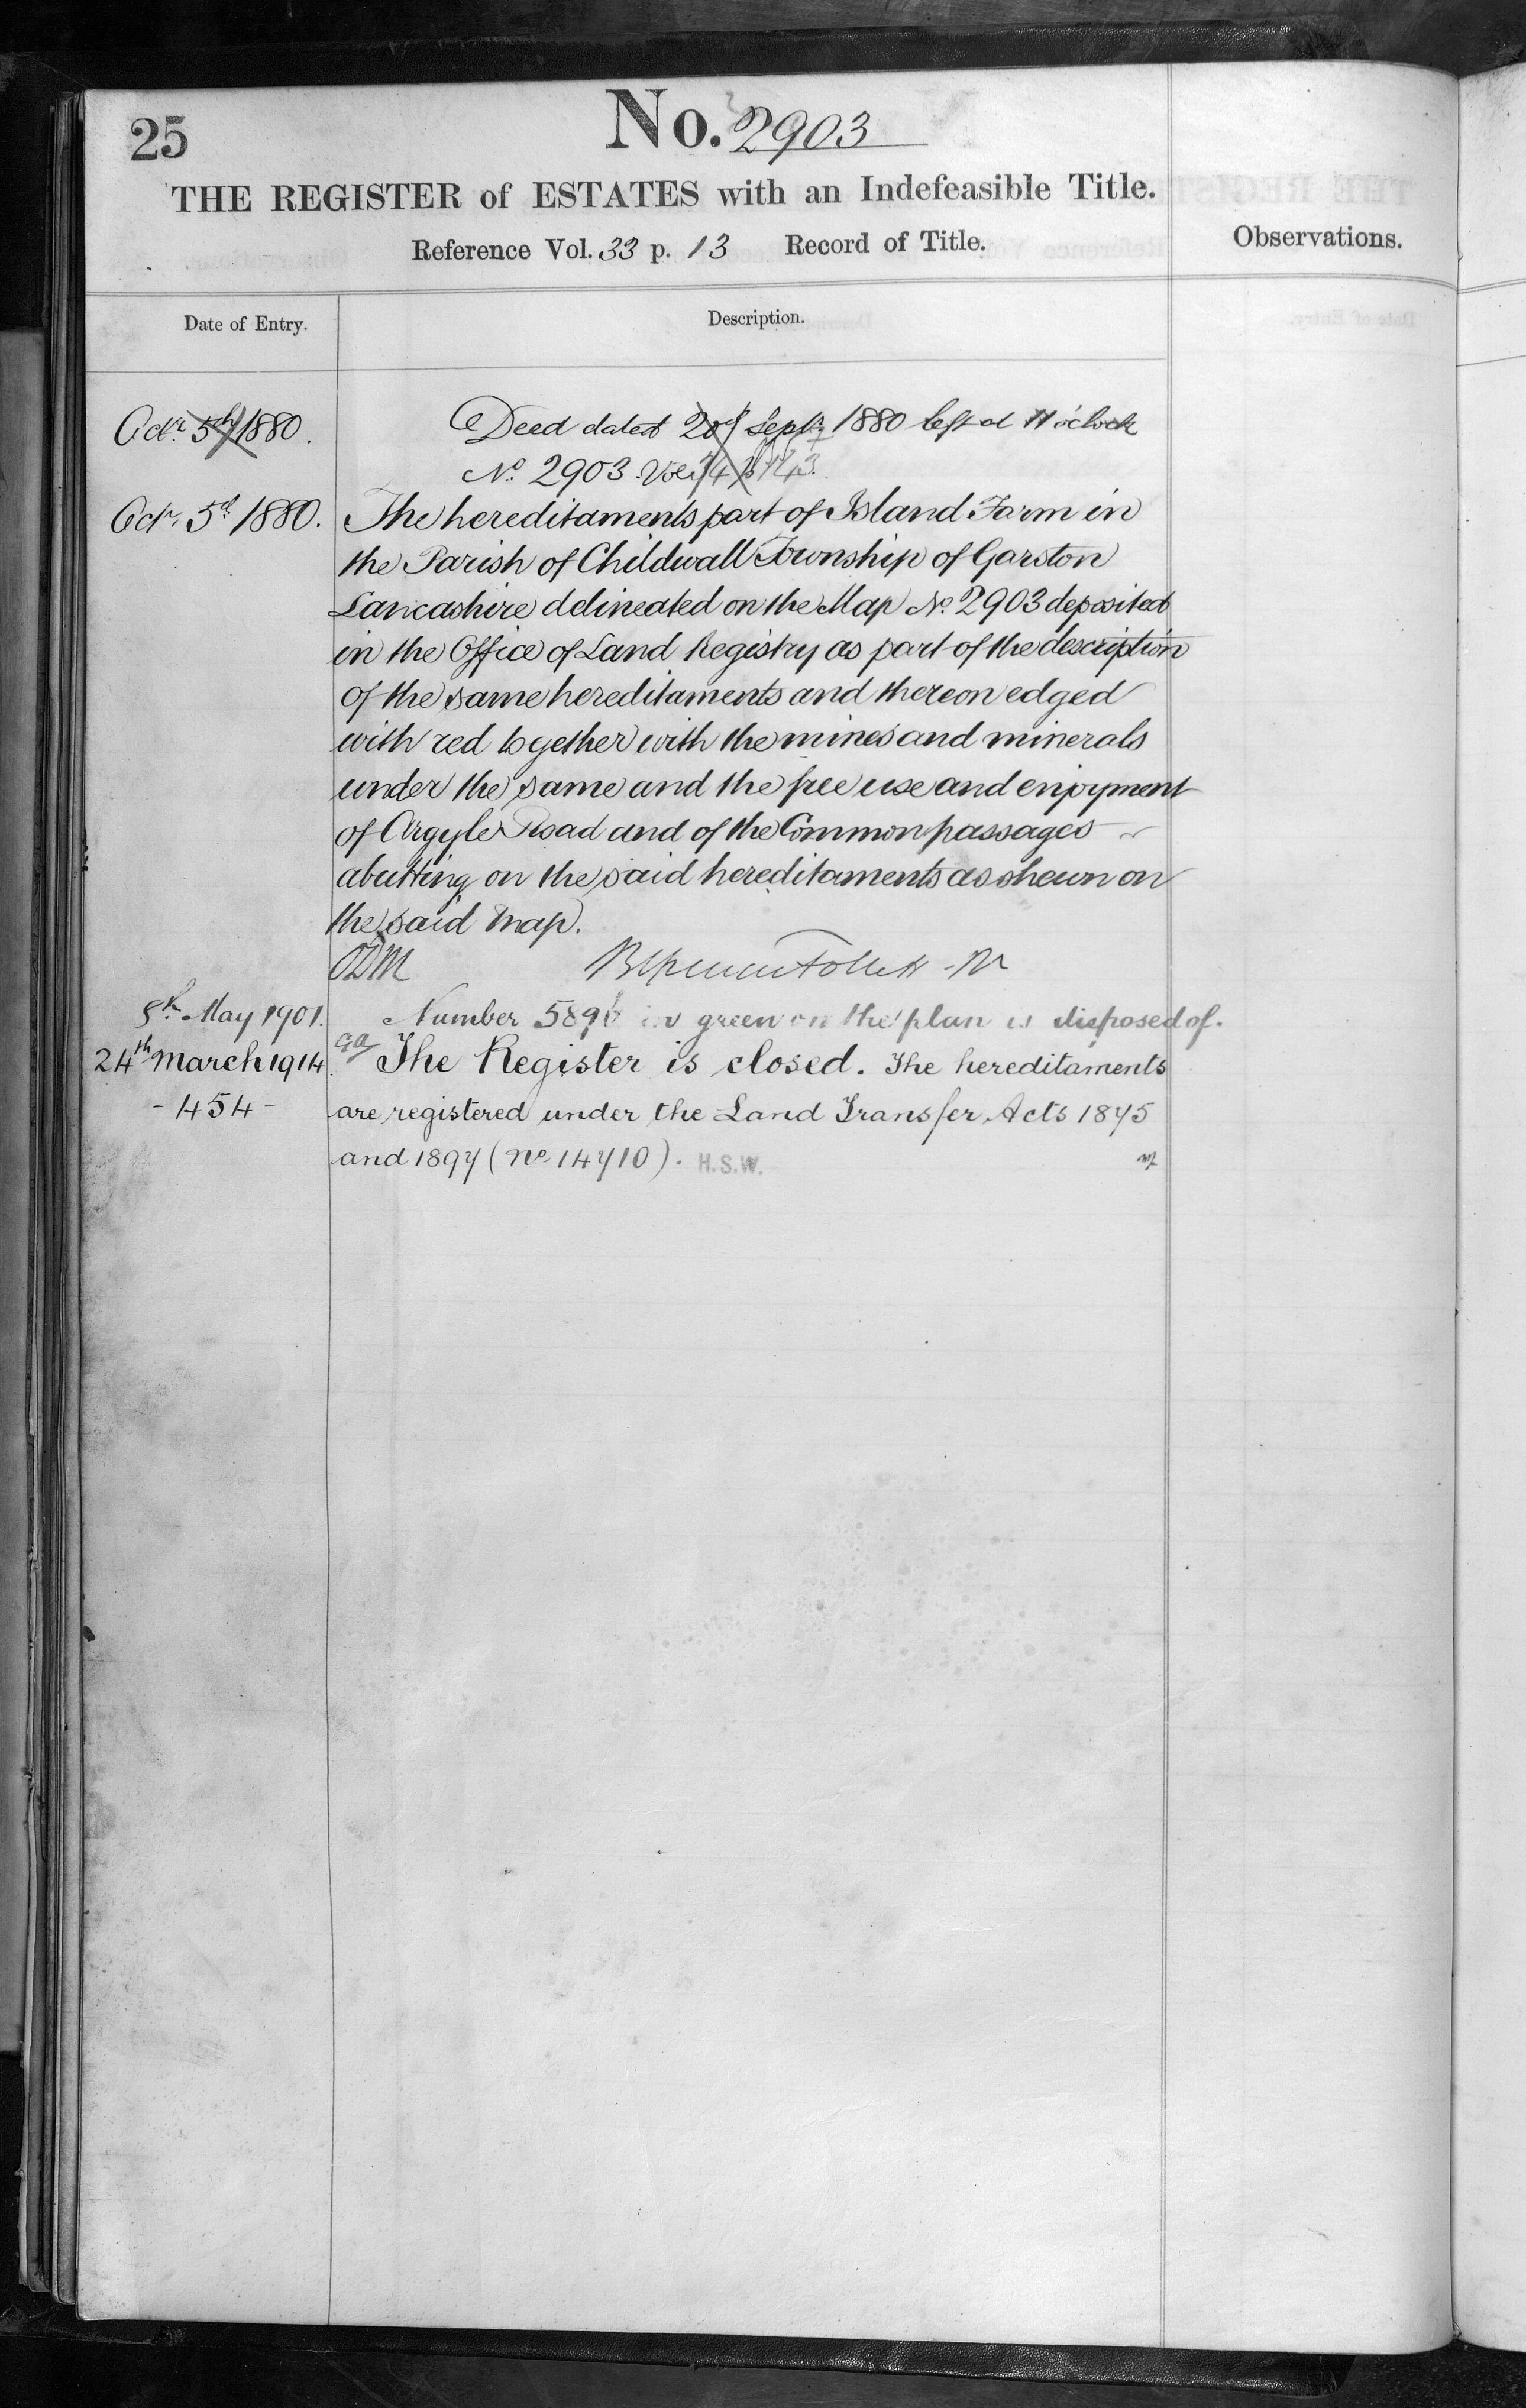 25
No. 2903
THE REGISTER of ESTATES with an Indefeasible Title.
Reference Vol. 33 p. 13 Record of Title.
Observations.
Date of Entry.
Description.
Octr. 5th 1880. Deed dated Septr 1880 left at 11 o'clock
No. 2903. Vol 34 p 143.
Octr. 5th 1880. The hereditaments part of Island Farm in
the Parish of Childwall Township of Garston
Lancashire delineated on the Map No. 2903 deposited
in the Office of Land Registry as part of the description
of the same hereditaments and thereon edged
with red together with the mines and minerals
under the same and the free use and enjoyment
of Argyle Road and of the Common passages
abutting on the said hereditaments as shewn on
the said Map.
8th May 1901. Number in green on the plan is disposed of.
24th March 1914 The Register is closed. The hereditaments
- 454 - are registered under the Land Transfer Acts 1875
and 1897 (No. 14710). H.S.W.